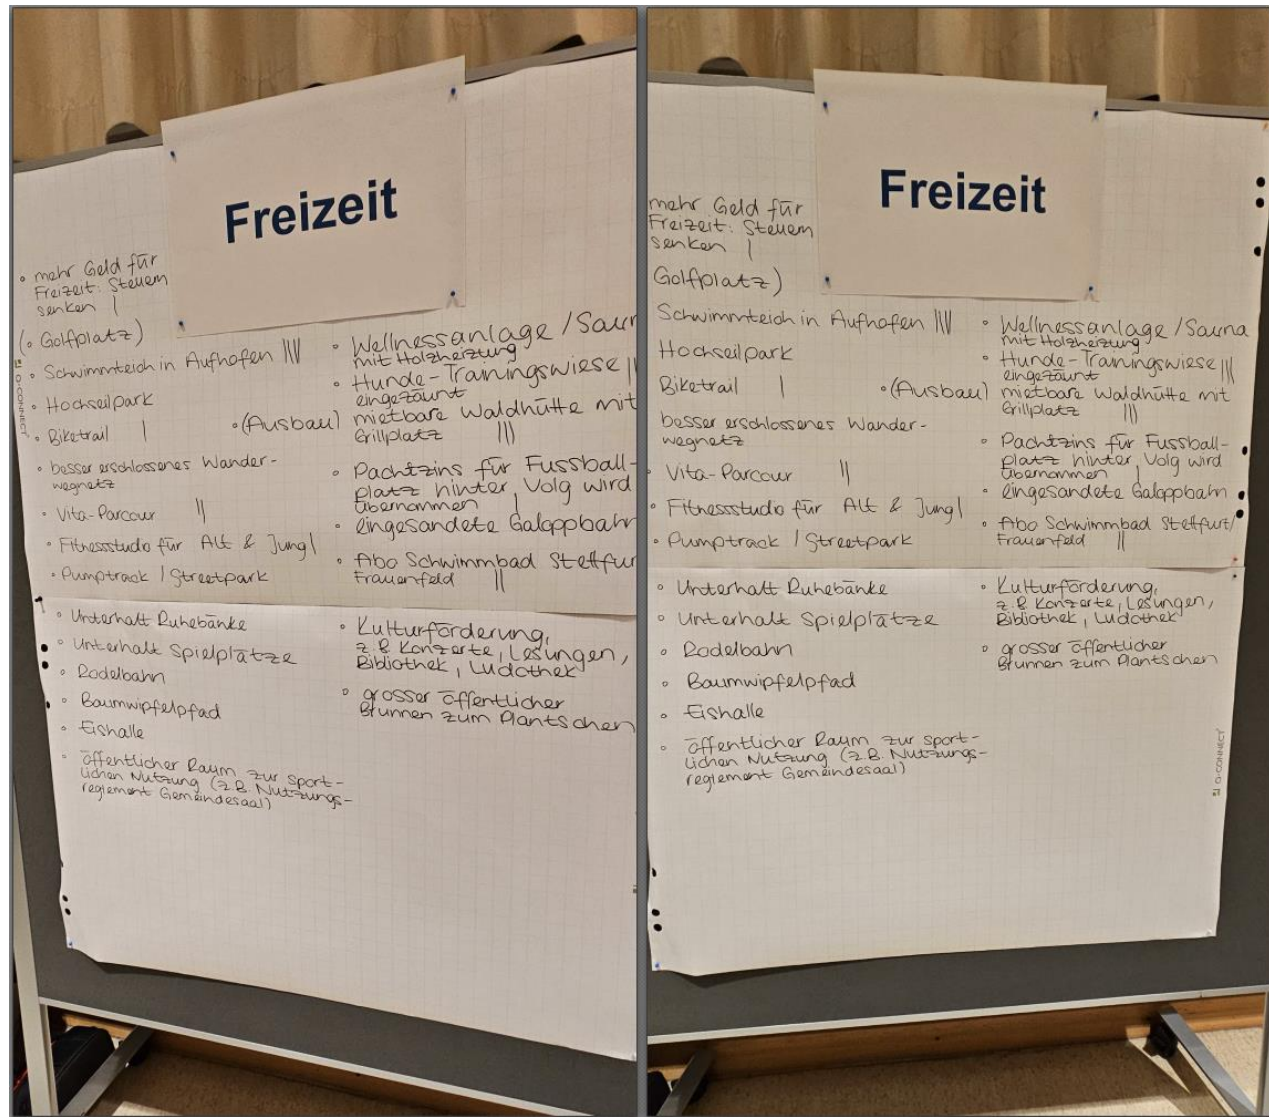 Freizeit
• mehr Geld für
Freizeit: Steuern
senken |
(• Golfplatz)
• Schwimmteich in Aufhofen ||||
• Hochseilpark
• Biketrail |
• besser erschlossenes Wander-
wegnetz
• Vita-Parcour ||
• Fitnessstudio für Alt & Jung |
• Pumptrack / Streetpark
• Wellnessanlage / Saun
mit Holzheizung
• Hunde-Trainingswiese ||
eingezäunt
• (Ausbau) mietbare Waldhütte mit
Grillplatz |||
• Pachtzins für Fussball-
platz hinter Volg wird
übernommen |
• eingesandete Galoppbahn
• Abo Schwimmbad Stettfur
Frauenfeld ||
• Unterhalt Ruhebänke
• Unterhalt Spielplätze
• Rodelbahn
• Baumwipfelpfad
• Eishalle
• öffentlicher Raum zur sport-
lichen Nutzung (z.B. Nutzungs-
reglement Gemeindesaal)
• Kulturförderung,
z.B. Konzerte, Lesungen,
Bibliothek, Ludothek
• grosser öffentlicher
Brunnen zum Plantschen
Q-CONNECT
Freizeit
mehr Geld für
Freizeit: Steuern
senken |
Golfplatz)
Schwimmteich in Aufhofen ||||
Hochseilpark
Biketrail |
besser erschlossenes Wander-
wegnetz
Vita-Parcour ||
Fitnessstudio für Alt & Jung |
Pumptrack / Streetpark
• Wellnessanlage / Sauna
mit Holzheizung
• Hunde-Trainingswiese |||
eingezäunt
• (Ausbau) mietbare Waldhütte mit
Grillplatz |||
• Pachtzins für Fussball-
platz hinter Volg wird
übernommen |
• eingesandete Galoppbahn
• Abo Schwimmbad Stettfurt/
Frauenfeld ||
• Unterhalt Ruhebänke
• Unterhalt Spielplätze
• Rodelbahn
• Baumwipfelpfad
• Eishalle
• öffentlicher Raum zur sport-
lichen Nutzung (z.B. Nutzungs-
reglement Gemeindesaal)
• Kulturförderung,
z.B. Konzerte, Lesungen,
Bibliothek, Ludothek
• grosser öffentlicher
Brunnen zum Plantschen
Q-CONNECT